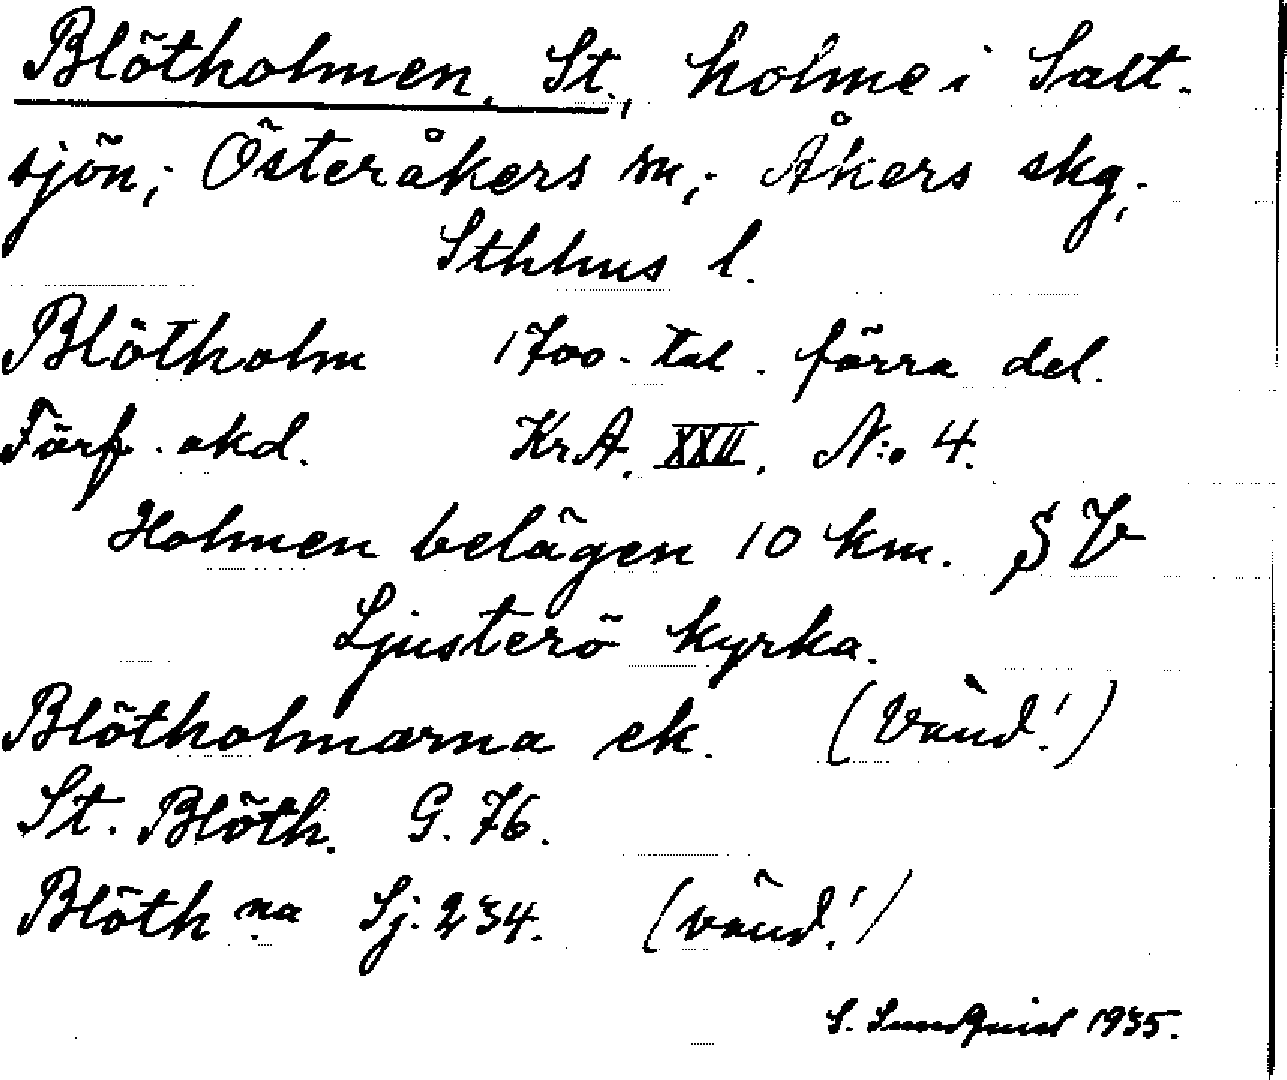 Blötholmen, St., holme i Salt-
sjön; Österåkers sn; Åkers skg;
Sthlms l.
Blötholm 1700-tal. förra del.
Förf. okd. KrA. XXII. N:o 4.
Holmen belägen 10 km. SV
Ljusterö kyrka.
Blötholmarna ek. (Vänd!)
St. Blöth. G. 76.
Blöth na Sj. 234. (vänd!)
S. Sundquist 1935.